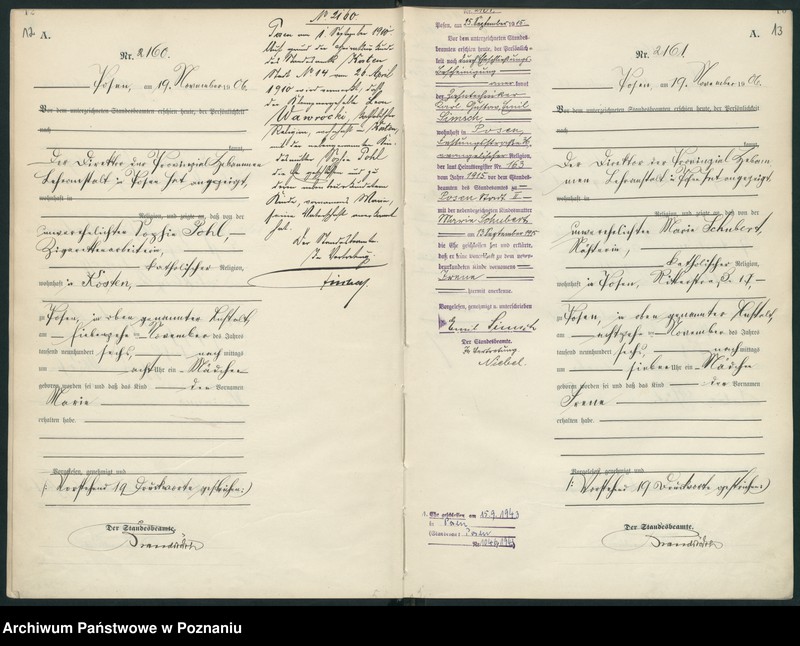 12
A.
Nr. 2160.
Posen, am 19. November 1906.
Vor dem unterzeichneten Standesbeamten erschien heute, der Persönlichkeit
nach
kannt,
Der Direktor der Provinzial Hebammen
Lehranstalt in Posen hat angezeigt,
wohnhaft in
Religion, und zeigte an, daß von der
unverehelichten Sophia Pohl,
Zigarettenarbeiterin,
katholischer Religion,
wohnhaft in Kosten,
zu Posen, in oben genannter Anstalt,
am siebzehnten November des Jahres
tausend neunhundert sechs, nach mittags
um acht Uhr ein Mädchen
geboren worden sei und daß das Kind den Vornamen
Marie
erhalten habe.
Vorgelesen, genehmigt und
(: Vorstehend 19 Druckworte gestrichen :)
Der Standesbeamte.
No. 2160
Posen am 1. September 1910
Auf Grund der
des Standesamts Kosten
Stadt No 14 vom 26 April
1910 wird vermerkt, daß
der
Wawrocki, katholischer
Religion, wohnhaft in Kosten,
mit der
Sophie Pohl
die Ehe geschlossen und zu
Kinde, Vornamens Marie,
seine Vaterschaft anerkannt
hat.
Der Standesbeamte
In Vertretung
Posen, am 25. September 1915
Vor dem unterzeichneten Standes-
beamten erschien heute, der Persönlich-
keit nach durch Eheschließungs-
bescheinigung
kannt
der Zahntechniker
Karl Gustav Emil
Simsch,
wohnhaft in Posen,
evangelischer Religion,
der laut Heiratsregister Nr. 163
vom Jahre 1915 vor dem Standes-
beamten des Standesamts zu
Posen Stadt II
mit der nebenbezeichneten Kindesmutter
Marie Schubert
am 13 September 1915
die Ehe geschlossen hat und erklärte,
daß er
Irene
hiermit anerkenne.
Vorgelesen, genehmigt u. unterschrieben
Emil Simsch
Der Standesbeamte.
In Vertretung
Niebel.
1. Ehe geschlossen am 15.9.1943
in Posen
(Standesamt Posen
Nr.
13
A.
Nr. 2161
Posen, am 19. November 1906.
Vor dem unterzeichneten Standesbeamten erschien heute, der Persönlichkeit
nach
kannt,
Der Direktor der Provinzial Hebam-
men Lehranstalt in Posen hat angezeigt,
wohnhaft in
Religion, und zeigte an, daß von der
unverehelichten Marie Schubert,
Näherin,
katholischer Religion,
wohnhaft in Posen, Ritterstraße 17,
zu Posen, in oben genannter Anstalt,
am achtzehnten November des Jahres
tausend neunhundert sechs, nach mittags
um sieben Uhr ein Mädchen
geboren worden sei und daß das Kind den Vornamen
Irene
erhalten habe.
Vorgelesen, genehmigt und
(: Vorstehend 19 Druckworte gestrichen :)
Der Standesbeamte.
Archiwum Państwowe w Poznaniu